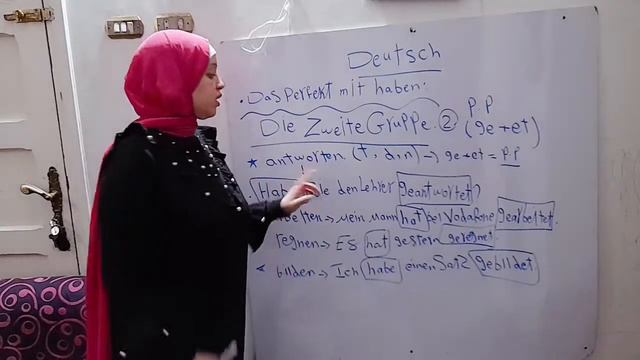 Deutsch
• Das Perfekt mit haben:
P.P
Die Zweite Gruppe ② (ge + et)
* antworten (t, d, n) → ge + et = P.P
den Lehrer geantwortet?
→ Mein Mann hat bei Vodafone gearbeitet.
regnen → Es hat gestern geregnet.
bilden → Ich habe einen Satz gebildet.